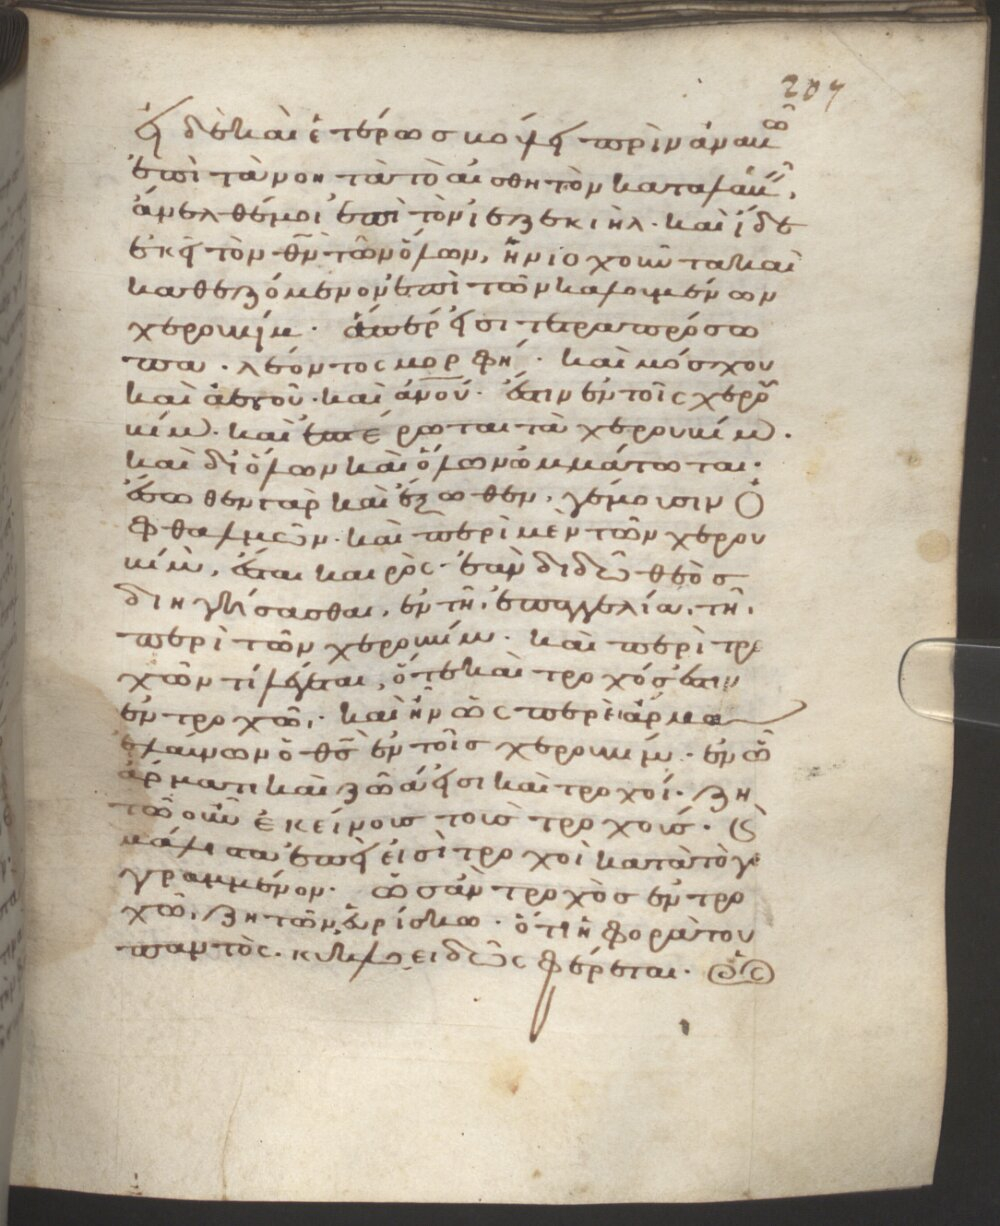 207
εἰ δὲ καὶ ἑτέρως κόψει πρὶν ἀναβῶ
ἐπὶ τὰ νοητὰ τὸ αἰσθητὸν καταλαβεῖν,
ἀνελθέ μοι ἐπὶ τὸν ἰεζεκιήλ. καὶ ἴδε
ἐκεῖ τὸν θν τῶν ὅλων, ἡνιοχοῦντα καὶ
καθεζόμενον ἐπὶ τῶν καλουμένων
χερουβίμ. ἅπερ εἰσὶ τετραπρόσω
πα. λέοντος μορφή. καὶ μόσχου
καὶ ἀετοῦ. καὶ ἀνου. ἐστὶν ἐν τοῖς χερου
βίμ. καὶ ἐπτέρωται τὰ χερουβίμ.
καὶ δι ὅλων καὶ ὅλων ὀμμάτωται.
ἔσωθεν γὰρ καὶ ἔξωθεν, γέμουσιν ὀ
φθαλμῶν. καὶ περὶ μὲν τῶν χερου
βίμ, ἔσται καιρὸς. ἐὰν διδῶ θεὸς
διηγήσασθαι, ἐν τῆ ἐπαγγελία τῆ
περὶ τῶν χερουβίμ. καὶ περὶ τρο
χῶν τί λέγεται, ὅτε καὶ τροχός ἐστιν
ἐν τροχῶ, καὶ ἦν ὡς περὶ ἅρμα
ἐλαύνων ὁ θς ἐν τοῖς χερουβίμ. ἐν ὧ
ἅρματι καὶ ζῶά εἰσι καὶ τροχοί. ζη
τῶ οὖν ἐκείνοις τοῖς τροχοῖς. καὶ
μάλιστα ἐπεὶ εἰσὶ τροχοὶ κατὰ τὸ γε
γραμμένον. ὡσὰν τροχὸς ἐν τρο
χῶ, ζητῶν εὑρίσκω. ὅτι ἡ φορὰ τοῦ
παντὸς. κυκλοειδῶς φέρεται.